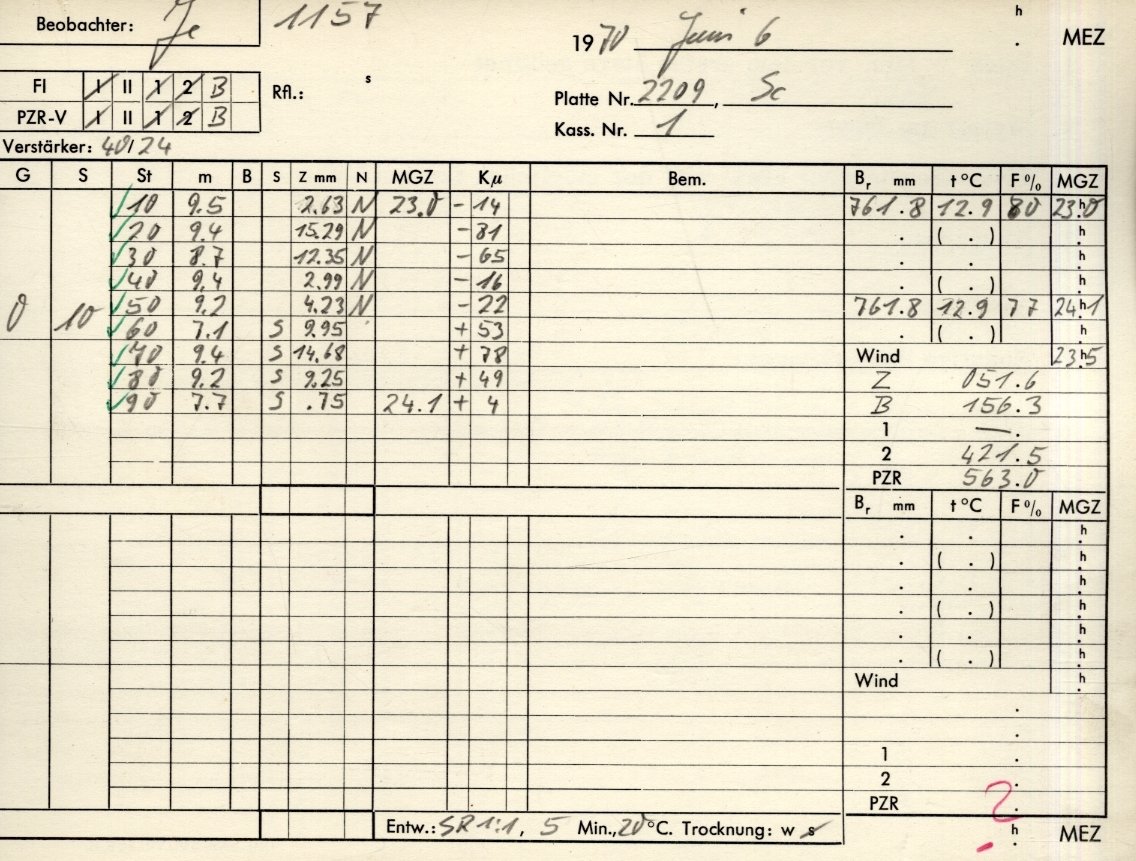 Beobachter: Je 1157 h
1970 Juni 6 . MEZ
FI I II 1 2 B Rfl.: s
Platte Nr. 2209, Sc
PZR-V I II 1 2 B
Kass. Nr. 1
Verstärker: 40/24
G S St m B S Z mm N MGZ Kμ Bem. Br mm t °C F % MGZ
10 9.5 2.63 N 23.0 - 14 761.8 12.9 80 23h.0
20 9.4 15.29 N - 81 . ( . ) h.
30 8.7 12.35 N - 65 . . h.
40 9.4 2.99 N - 16 . ( . ) h.
0 10 50 9.2 4.23 N - 22 761.8 12.9 77 24h.1
60 7.1 S 9.95 + 53 . ( . ) h.
70 9.4 S 14.68 + 78 Wind 23h.5
80 9.2 S 9.25 + 49 Z 051.6
90 7.7 S .75 24.1 + 4 B 156.3
1 —.
2 421.5
PZR 563.0
Br mm t °C F % MGZ
. . h.
. ( . ) h.
. . h.
. ( . ) h.
. . h.
. ( . ) h.
Wind h.
.
.
1 .
2 .
PZR .
Entw.: SR 1:1, 5 Min., 20 °C. Trocknung: w s
h. MEZ